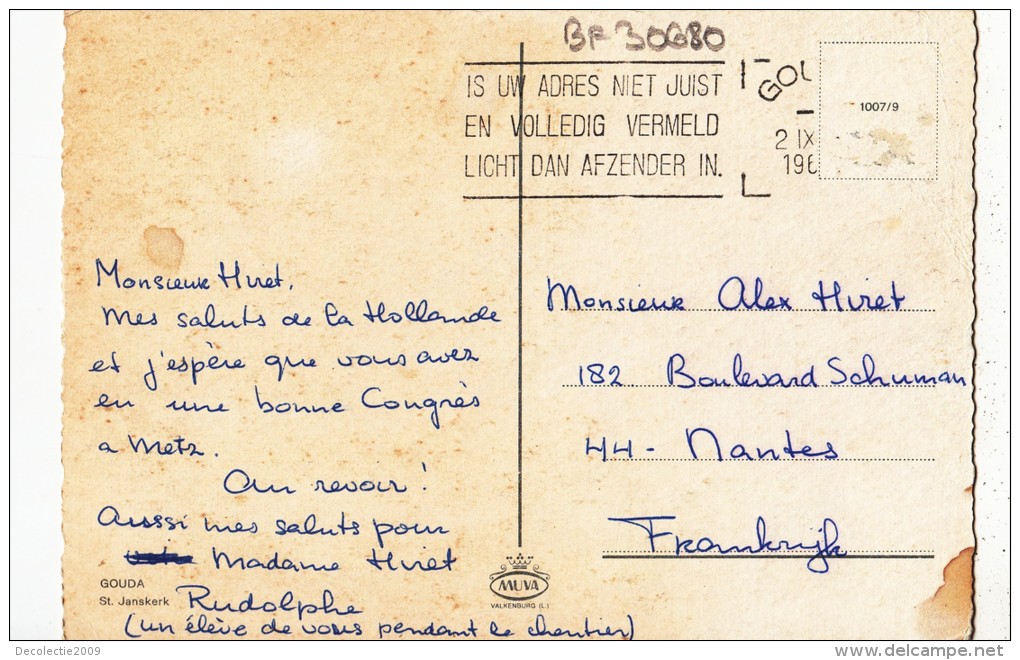 BF 30680
IS UW ADRES NIET JUIST
EN VOLLEDIG VERMELD
LICHT DAN AFZENDER IN.
GOU
2 IX
196
1007/9
Monsieur Hiret,
Mes saluts de la Hollande
et j'espère que vous avez
en une bonne Congrès
a Metz.
Au revoir!
Ausssi mes saluts pour
Madame Hiret
Rudolphe
(un élève de vous pendant le chantier)
GOUDA
St. Janskerk
MUVA
VALKENBURG (L.)
Monsieur Alex Hiret
182 Boulevard Schuman
44 - Nantes
Frankrijk
Decolectie2009
www.delcampe.net